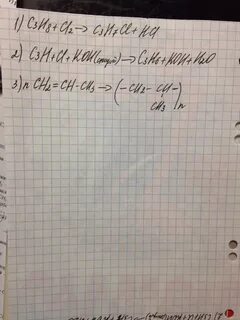 1) C3H8 + Cl2 → C3H7Cl + HCl
2) C3H7Cl + KOH(спирт) → C3H6 + KOH + H2O
3) n CH2 = CH - CH3 → (- CH2 - CH -)n
CH3